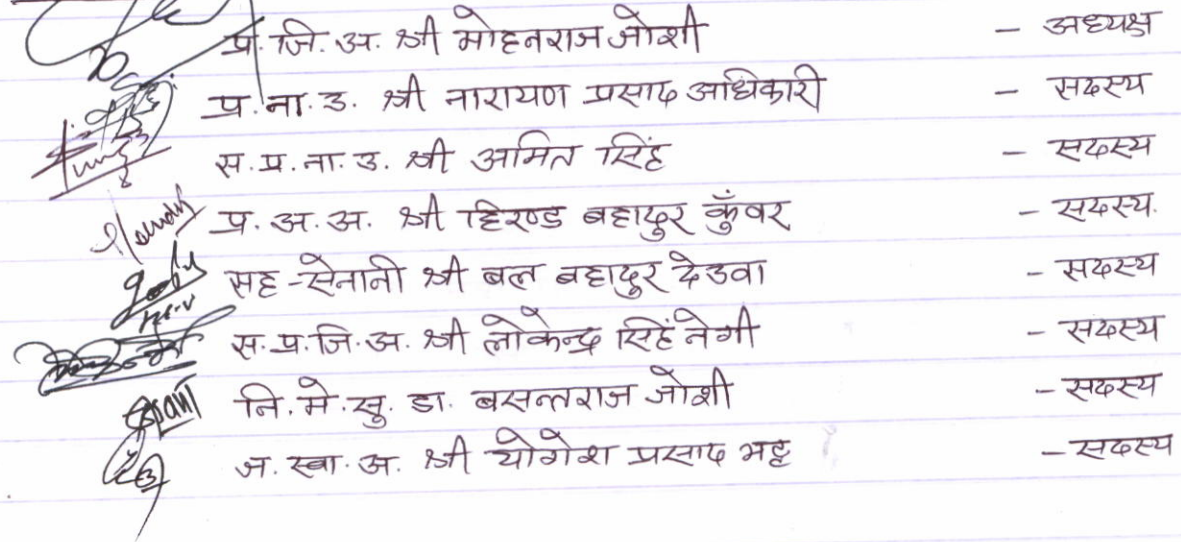 प्र. जि. अ. श्री मोहनराज जोशी - अध्यक्ष
प्र. ना. उ. श्री नारायण प्रसाद अधिकारी - सदस्य
स. प्र. ना. उ. श्री अमित सिंह - सदस्य
प्र. अ. अ. श्री हिरण्ड बहादुर कुँवर - सदस्य.
सह-सेनानी श्री बल बहादुर देउवा - सदस्य
स. प्र. जि. अ. श्री लोकेन्द्र सिहं नेगी - सदस्य
नि. मे. सु. डा. बसन्तराज जोशी - सदस्य
ज. स्वा. अ. श्री योगेश प्रसाद भट्ट - सदस्य